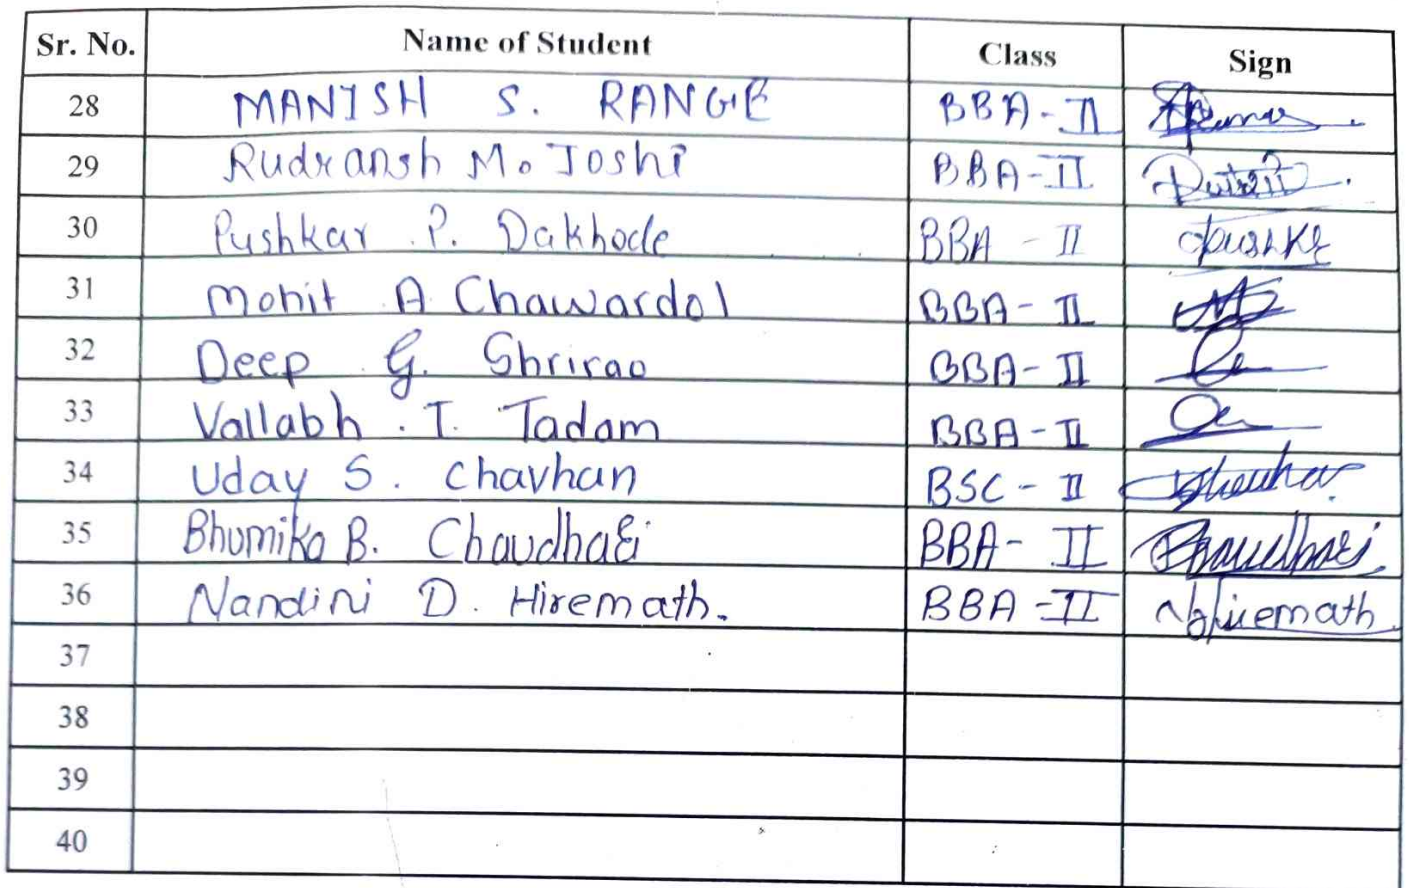 Sr. No. Name of Student Class Sign
28 MANISH S. RANGE BBA-II
29 Rudransh M. Joshi BBA-II
30 Pushkar P. Dakhode BBA - II Pushkr
31 Mohit A Chawardol BBA- II
32 Deep G. Shrirao BBA- II
33 Vallabh . T. Tadam BBA-II
34 Uday S. Chavhan BSC- II
35 Bhumika B. Chaudhari BBA- II Chaudhari
36 Nandini D. Hiremath. BBA -II NHiremath
37
38
39
40